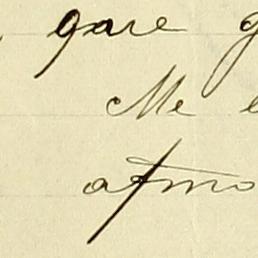 gare
Me
atmo